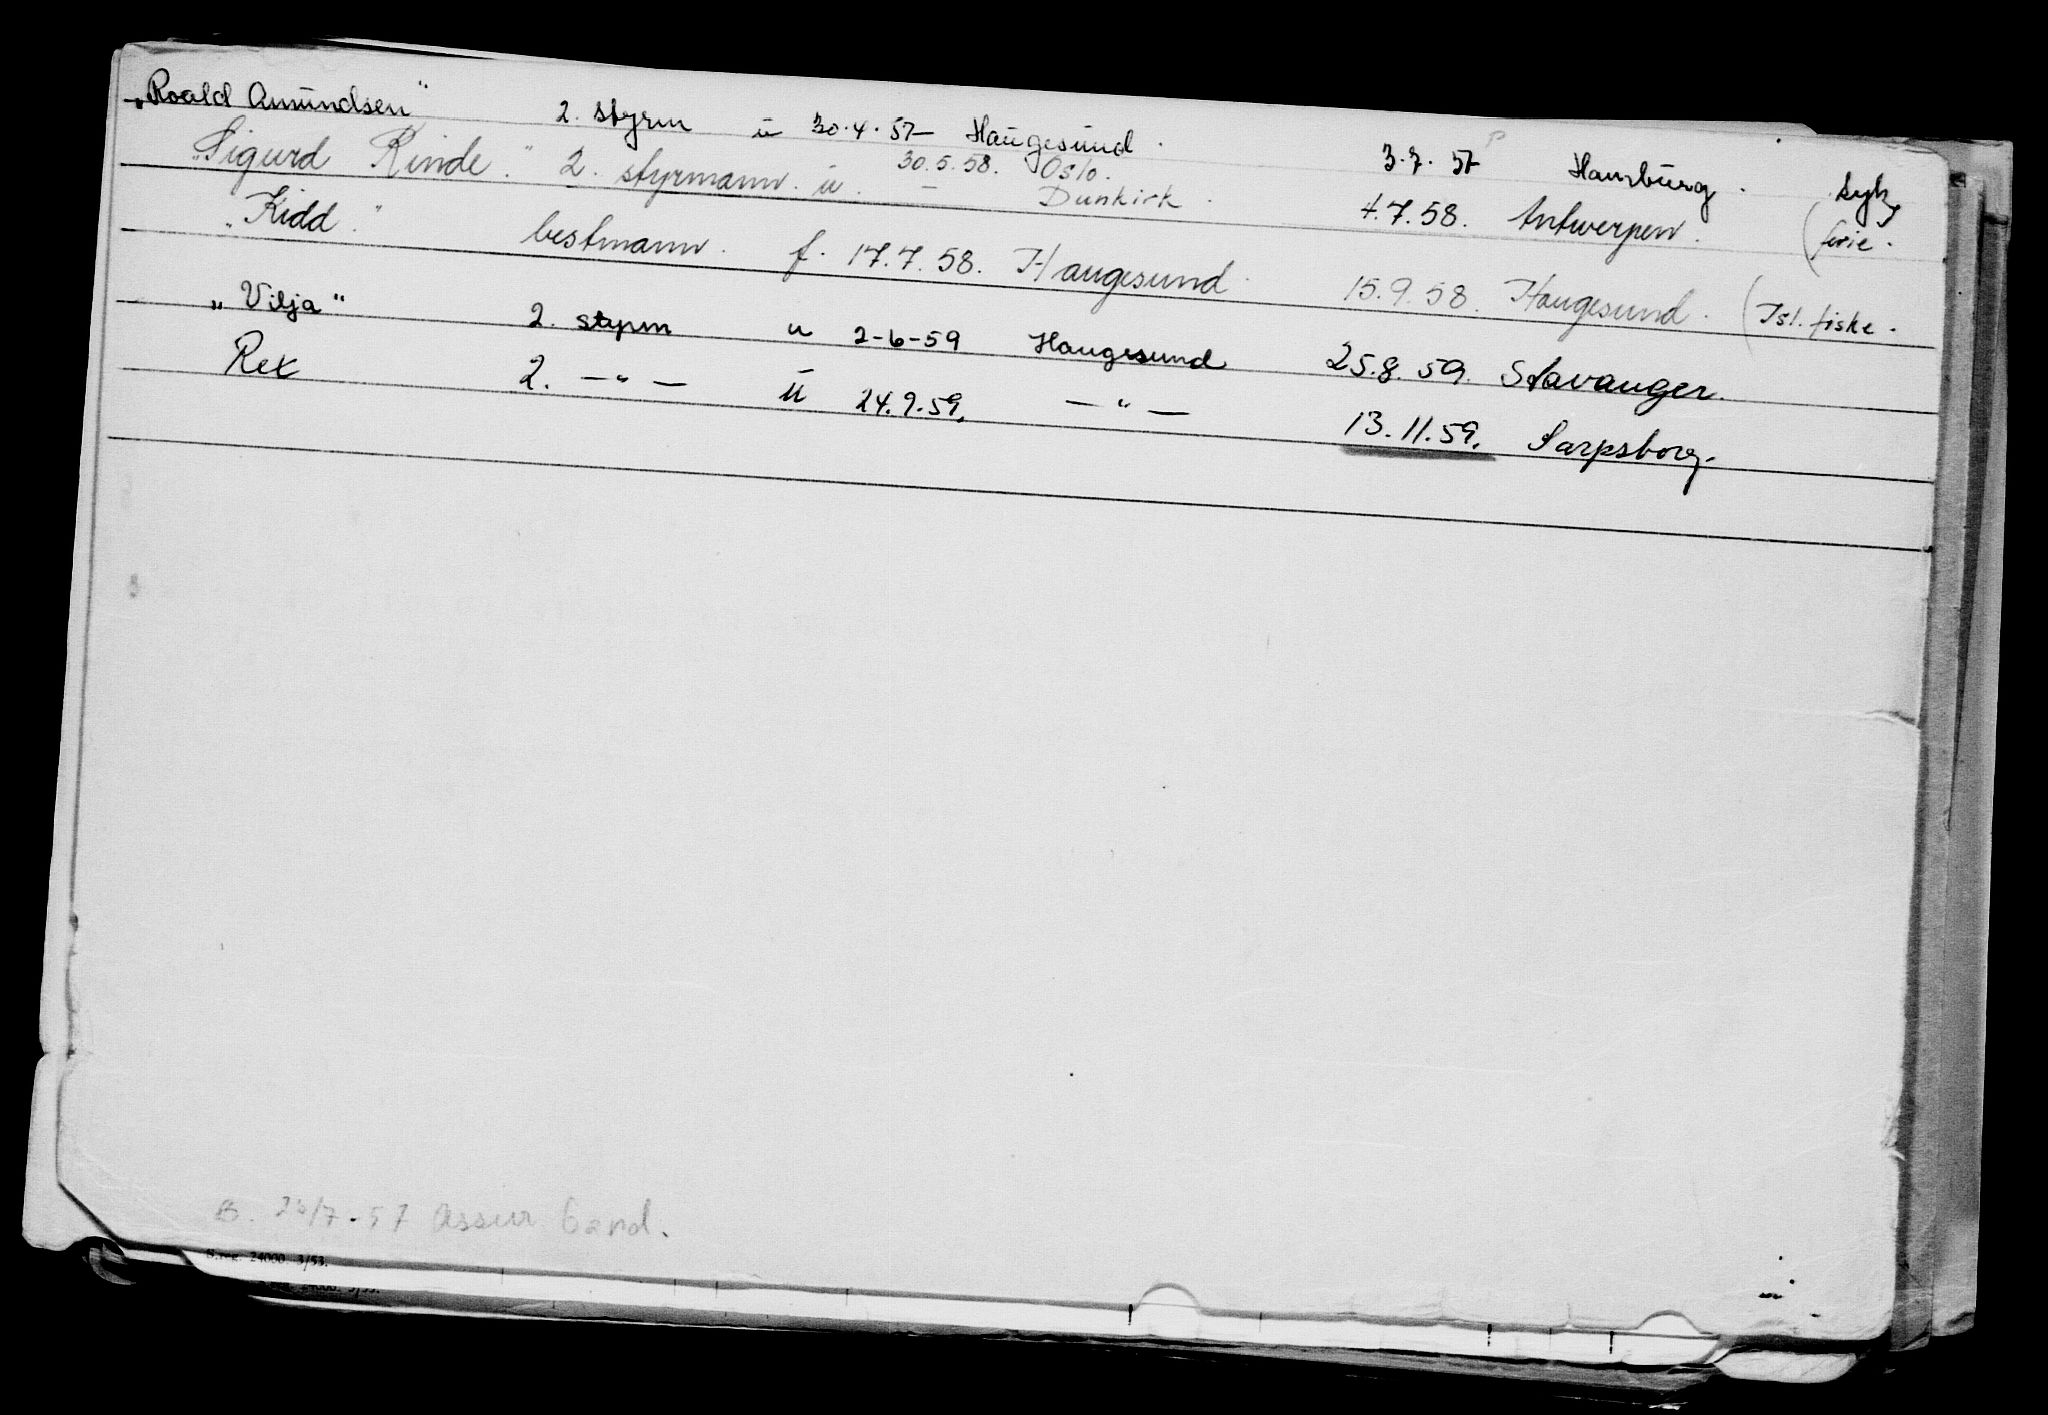 „Roald Amundsen" 2. styrm u 30.4.57 Haugesund. 3.7.57 Hamburg. syk
„Sigurd Rinde." 2. styrmann. u. 30.5.58. Oslo. – Dunkirk. 4.7.58. Antwerpen. (ferie.
„Kidd." bestmann. f. 17.7.58. Haugesund. 15.9.58. Haugesund. (Isl. fiske.
„Vilja" 2. styrm u 2-6-59 Haugesund 25.8.59. Stavanger.
Rex 2. —"— u 24.9.59. —"— 13.11.59. Sarpsborg.
B. /7-57 Assur
S.reg. 24000. 3/53.